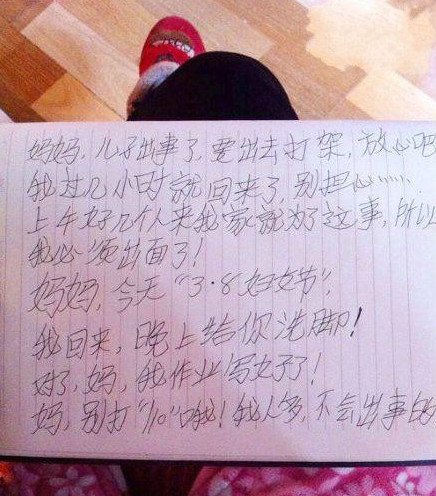 妈妈,儿子出事了,要出去打架,放心吧
我过几小时就回来了,别担心……
上午好几个人来我家就为了这事,所以
我必须出面了!
妈妈,今天“3·8妇女节”,
我回来,晚上给你洗脚!
对了,妈,我作业写好了!
妈,别打“110”哦!我人多,不会出事的